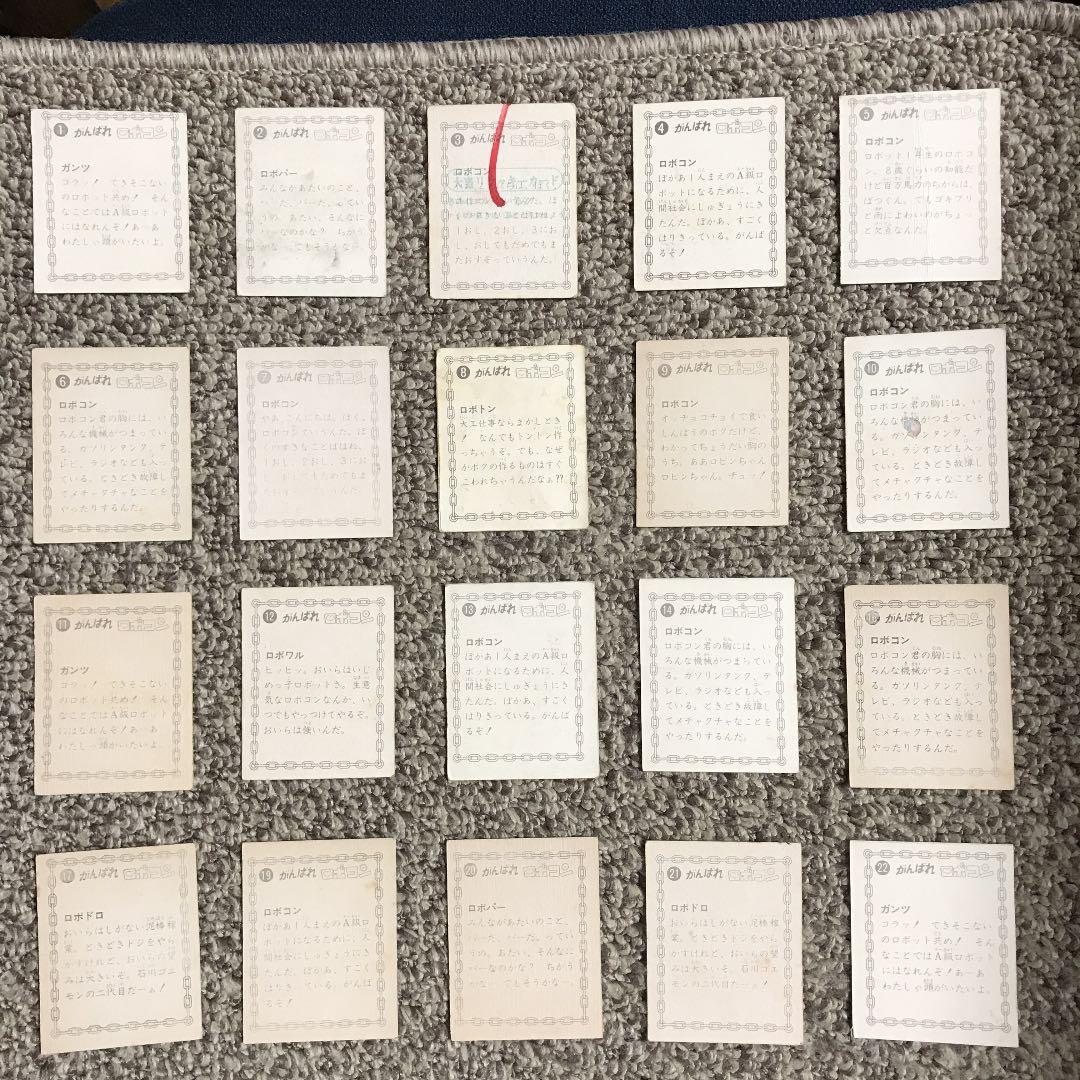 1 がんばれ ロボコン
ガンツ
コラッ! できそこない
のロボット共め! そん
なことではA級ロボット
にはなれんぞ!あーあ
わたしゃ頭がいたいよ。
2 がんばれ ロボコン
ロボパー
みんながあたいのこと、
3 がんばれ ロボコン
ロボコン
1おし、2おし、3にお
し、おしてもだめでもま
たおすぞっていうんだ。
4 がんばれ ロボコン
ロボコン
ぼかあ1人まえのA級ロ
ボットになるために、人
間社会にしゅぎょうにき
たんだ。ぼかあ、すごく
はりきっている。がんば
るぞ!
5 がんばれ ロボコン
ロボコン
ロボット1年生のロボコ
ン。8歳くらいの知能だ
けど百万馬力のちからは、
ばつぐん。でもゴキブリ
と雨によわいのがちょっ
と欠点なんだ。
6 がんばれ ロボコン
ロボコン
ロボコン君の胸には、い
ろんな機械がつまってい
る。ガソリンタンク、テ
レビ、ラジオなども入っ
ている。ときどき故障し
てメチャクチャなことを
やったりするんだ。
7 がんばれ ロボコン
ロボコン
8 がんばれ ロボコン
ロボトン
大工仕事ならまかしとき
! なんでもトントン作
っちゃうぞ。でも、なぜ
かボクの作るものはすぐ
こわれちゃうんだなぁ??
9 がんばれ ロボコン
ロボコン
オッチョコチョイで食い
しんぼうのボクだけど、
わかってちょうだい胸の
うち。ああロビンちゃん
ロビンちゃん。チュッ!
10 がんばれ ロボコン
ロボコン
ロボコン君の胸には、い
ろんな機械がつまってい
る。ガソリンタンク、テ
レビ、ラジオなども入っ
ている。ときどき故障し
てメチャクチャなことを
やったりするんだ。
11 がんばれ ロボコン
ガンツ
コラッ! できそこない
のロボット共め! そん
なことではA級ロボット
にはなれんぞ!あーあ
わたしゃ頭がいたいよ。
12 がんばれ ロボコン
ロボワル
ヒッヒッ。おいらはいじ
めっ子ロボットさ。生意
気なロボコンなんか、い
つでもやっつけてやるぞ。
おいらは強いんだ。
13 がんばれ ロボコン
ロボコン
ぼかあ1人まえのA級ロ
ボットになるために、人
間社会にしゅぎょうにき
たんだ。ぼかあ、すごく
はりきっている。がんば
るぞ!
14 がんばれ ロボコン
ロボコン
ロボコン君の胸には、い
ろんな機械がつまってい
る。ガソリンタンク、テ
レビ、ラジオなども入っ
ている。ときどき故障し
てメチャクチャなことを
やったりするんだ。
がんばれ ロボコン
ロボコン
ロボコン君の胸には、い
ろんな機械がつまってい
る。ガソリンタンク、テ
レビ、ラジオなども入っ
ている。ときどき故障し
てメチャクチャなことを
やったりするんだ。
17 がんばれ ロボコン
ロボドロ
おいらはしがない泥棒稼
業。ときどきドジをやら
かすけれど、おいらの望
みは大きいぞ。石川ゴエ
モンの二代目だーぁ!
19 がんばれ ロボコン
ロボコン
ぼかあ1人まえのA級ロ
ボットになるために、人
間社会にしゅぎょうにき
たんだ。ぼかあ、すごく
はりきっている。がんば
るぞ!
20 がんばれ ロボコン
ロボパー
みんながあたいのこと、
うの。あたい、そんなに
パーなのかな? ちがう
かな。でもそうかな。
21 がんばれ ロボコン
ロボドロ
おいらはしがない泥棒稼
業。ときどきドジをやら
かすけれど、おいらの望
みは大きいぞ。石川ゴエ
モンの二代目だーぁ!
22 がんばれ ロボコン
ガンツ
コラッ! できそこない
のロボット共め! そん
なことではA級ロボット
にはなれんぞ!あーあ
わたしゃ頭がいたいよ。